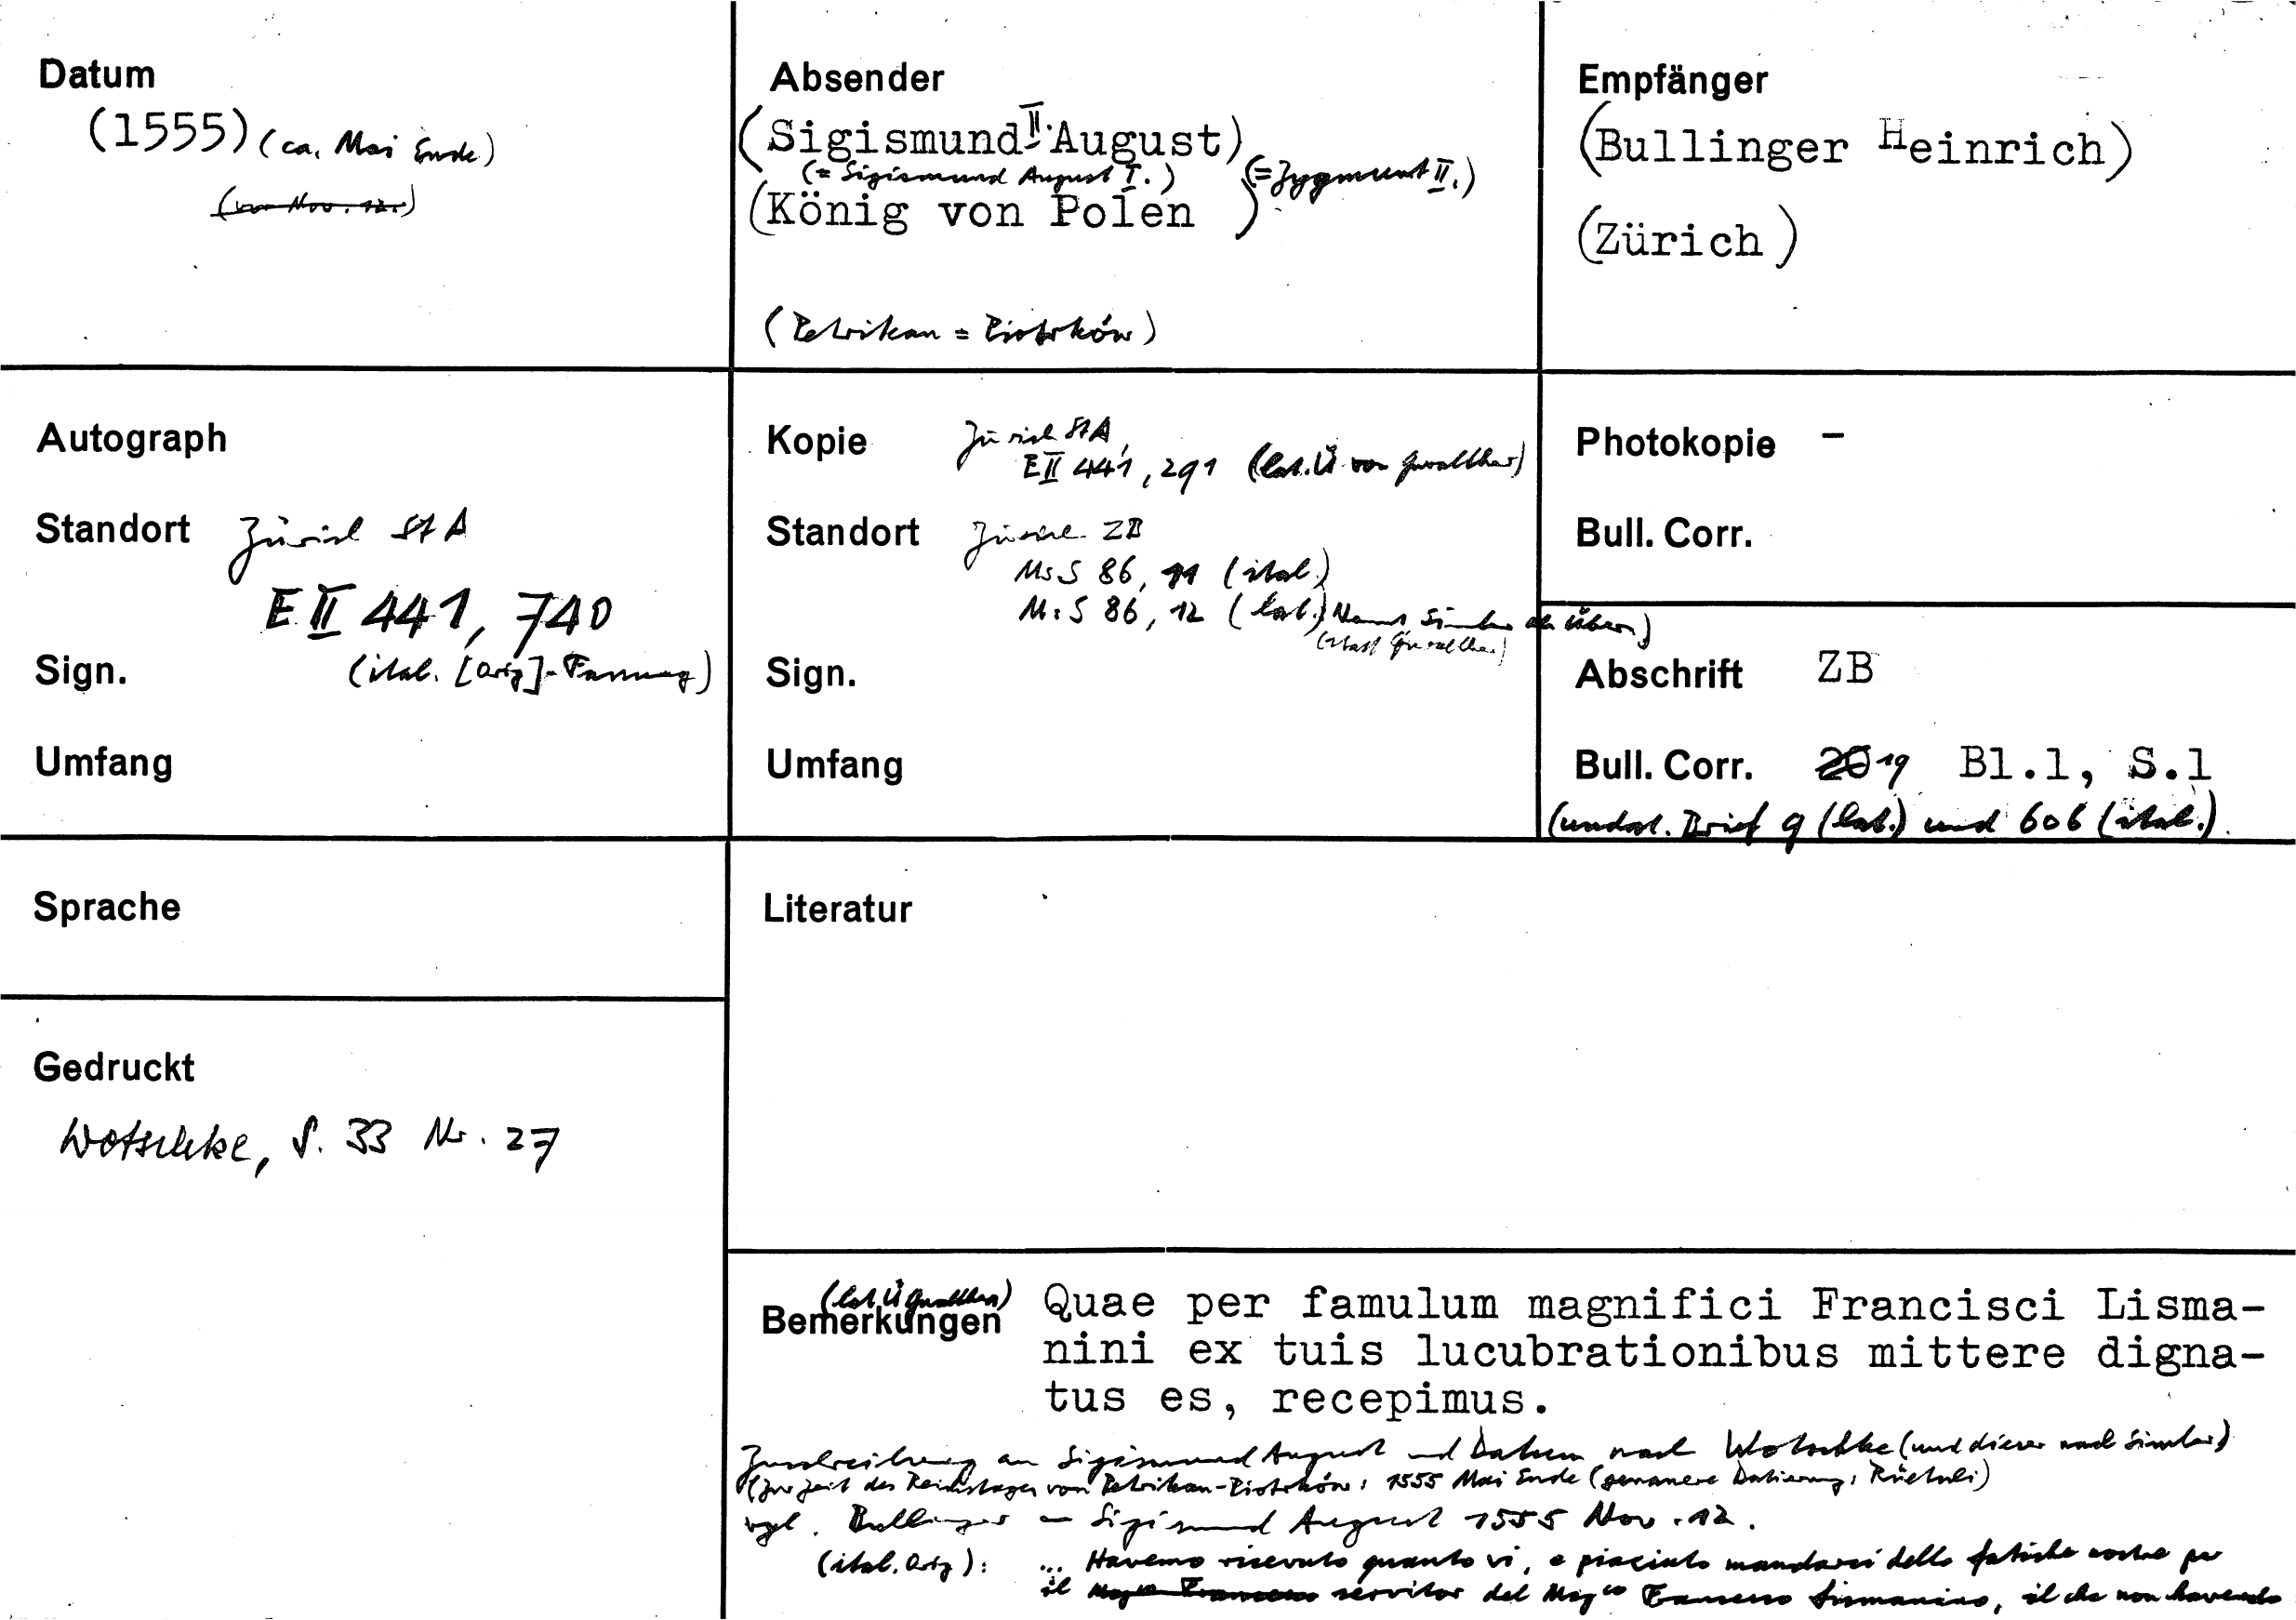 Datum
(1555) (ca. Mai Ende)
(vor Nov. 12.)
Absender
(Sigismund II. August)
(= Sigismund August I.) (= Zygmunt II.)
(König von Polen )
(Petrikau = Piotrków)
Empfänger
(Bullinger Heinrich)
(Zürich )
Autograph
Standort Zürich StA
E II 441, 740
Sign. (ital. [Orig]-Fassung)
Umfang
Kopie Zürich StA,
E II 441, 291 (lat. Ü von Gwalther)
Standort Zürich ZB
Ms S 86, 11 (ital.)
Ms S 86, 12 (lat.) Nennt Simler als Übers)
(statt Gwalther)
Sign.
Umfang
Photokopie –
Bull. Corr.
Abschrift ZB
Bull. Corr. 20 19 Bl.1, S.1
(undat. Brief 9 (lat.) und 606 (ital.).
Sprache
Literatur
Gedruckt
Wotschke, S. 33 Nr. 27
(lat. Ü Gwalther)
Bemerkungen Quae per famulum magnifici Francisci Lisma-
nini ex tuis lucubrationibus mittere digna-
tus es, recepimus.
Zuschreibung an Sigismund August und Datum nach Wotschke (und dieser nach Simler)
(zur Zeit des Reichstages von Petrikau-Piotrków: 1555 Mai Ende (genauere Datierung: Rüetschi)
vgl. Bullinger an Sigismund August 1555 Nov. 12.
(ital. Orig): ... Havemo ricevuto quanto vi, e piaciuto mandarci delle fatiche vostre per
il Mag^co Francesco servitor del Mag^co Francesco Lismanino, il che non havendo